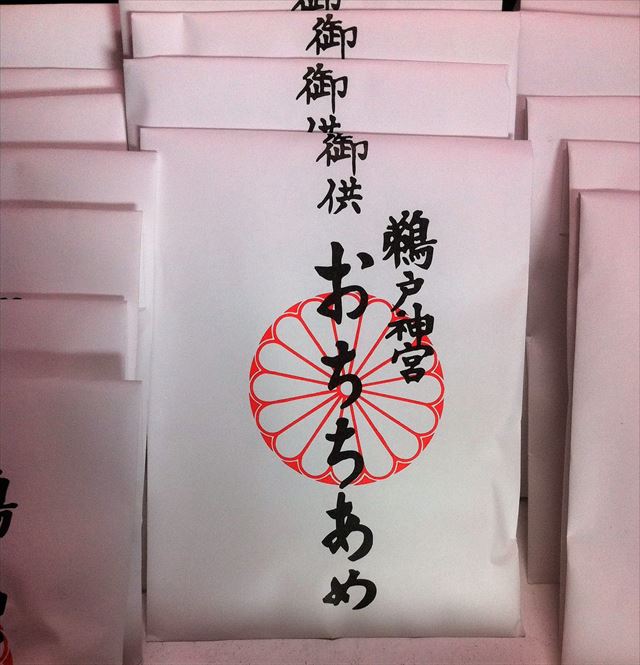 御
御
鵜戸神宮
御供 おちちあめ